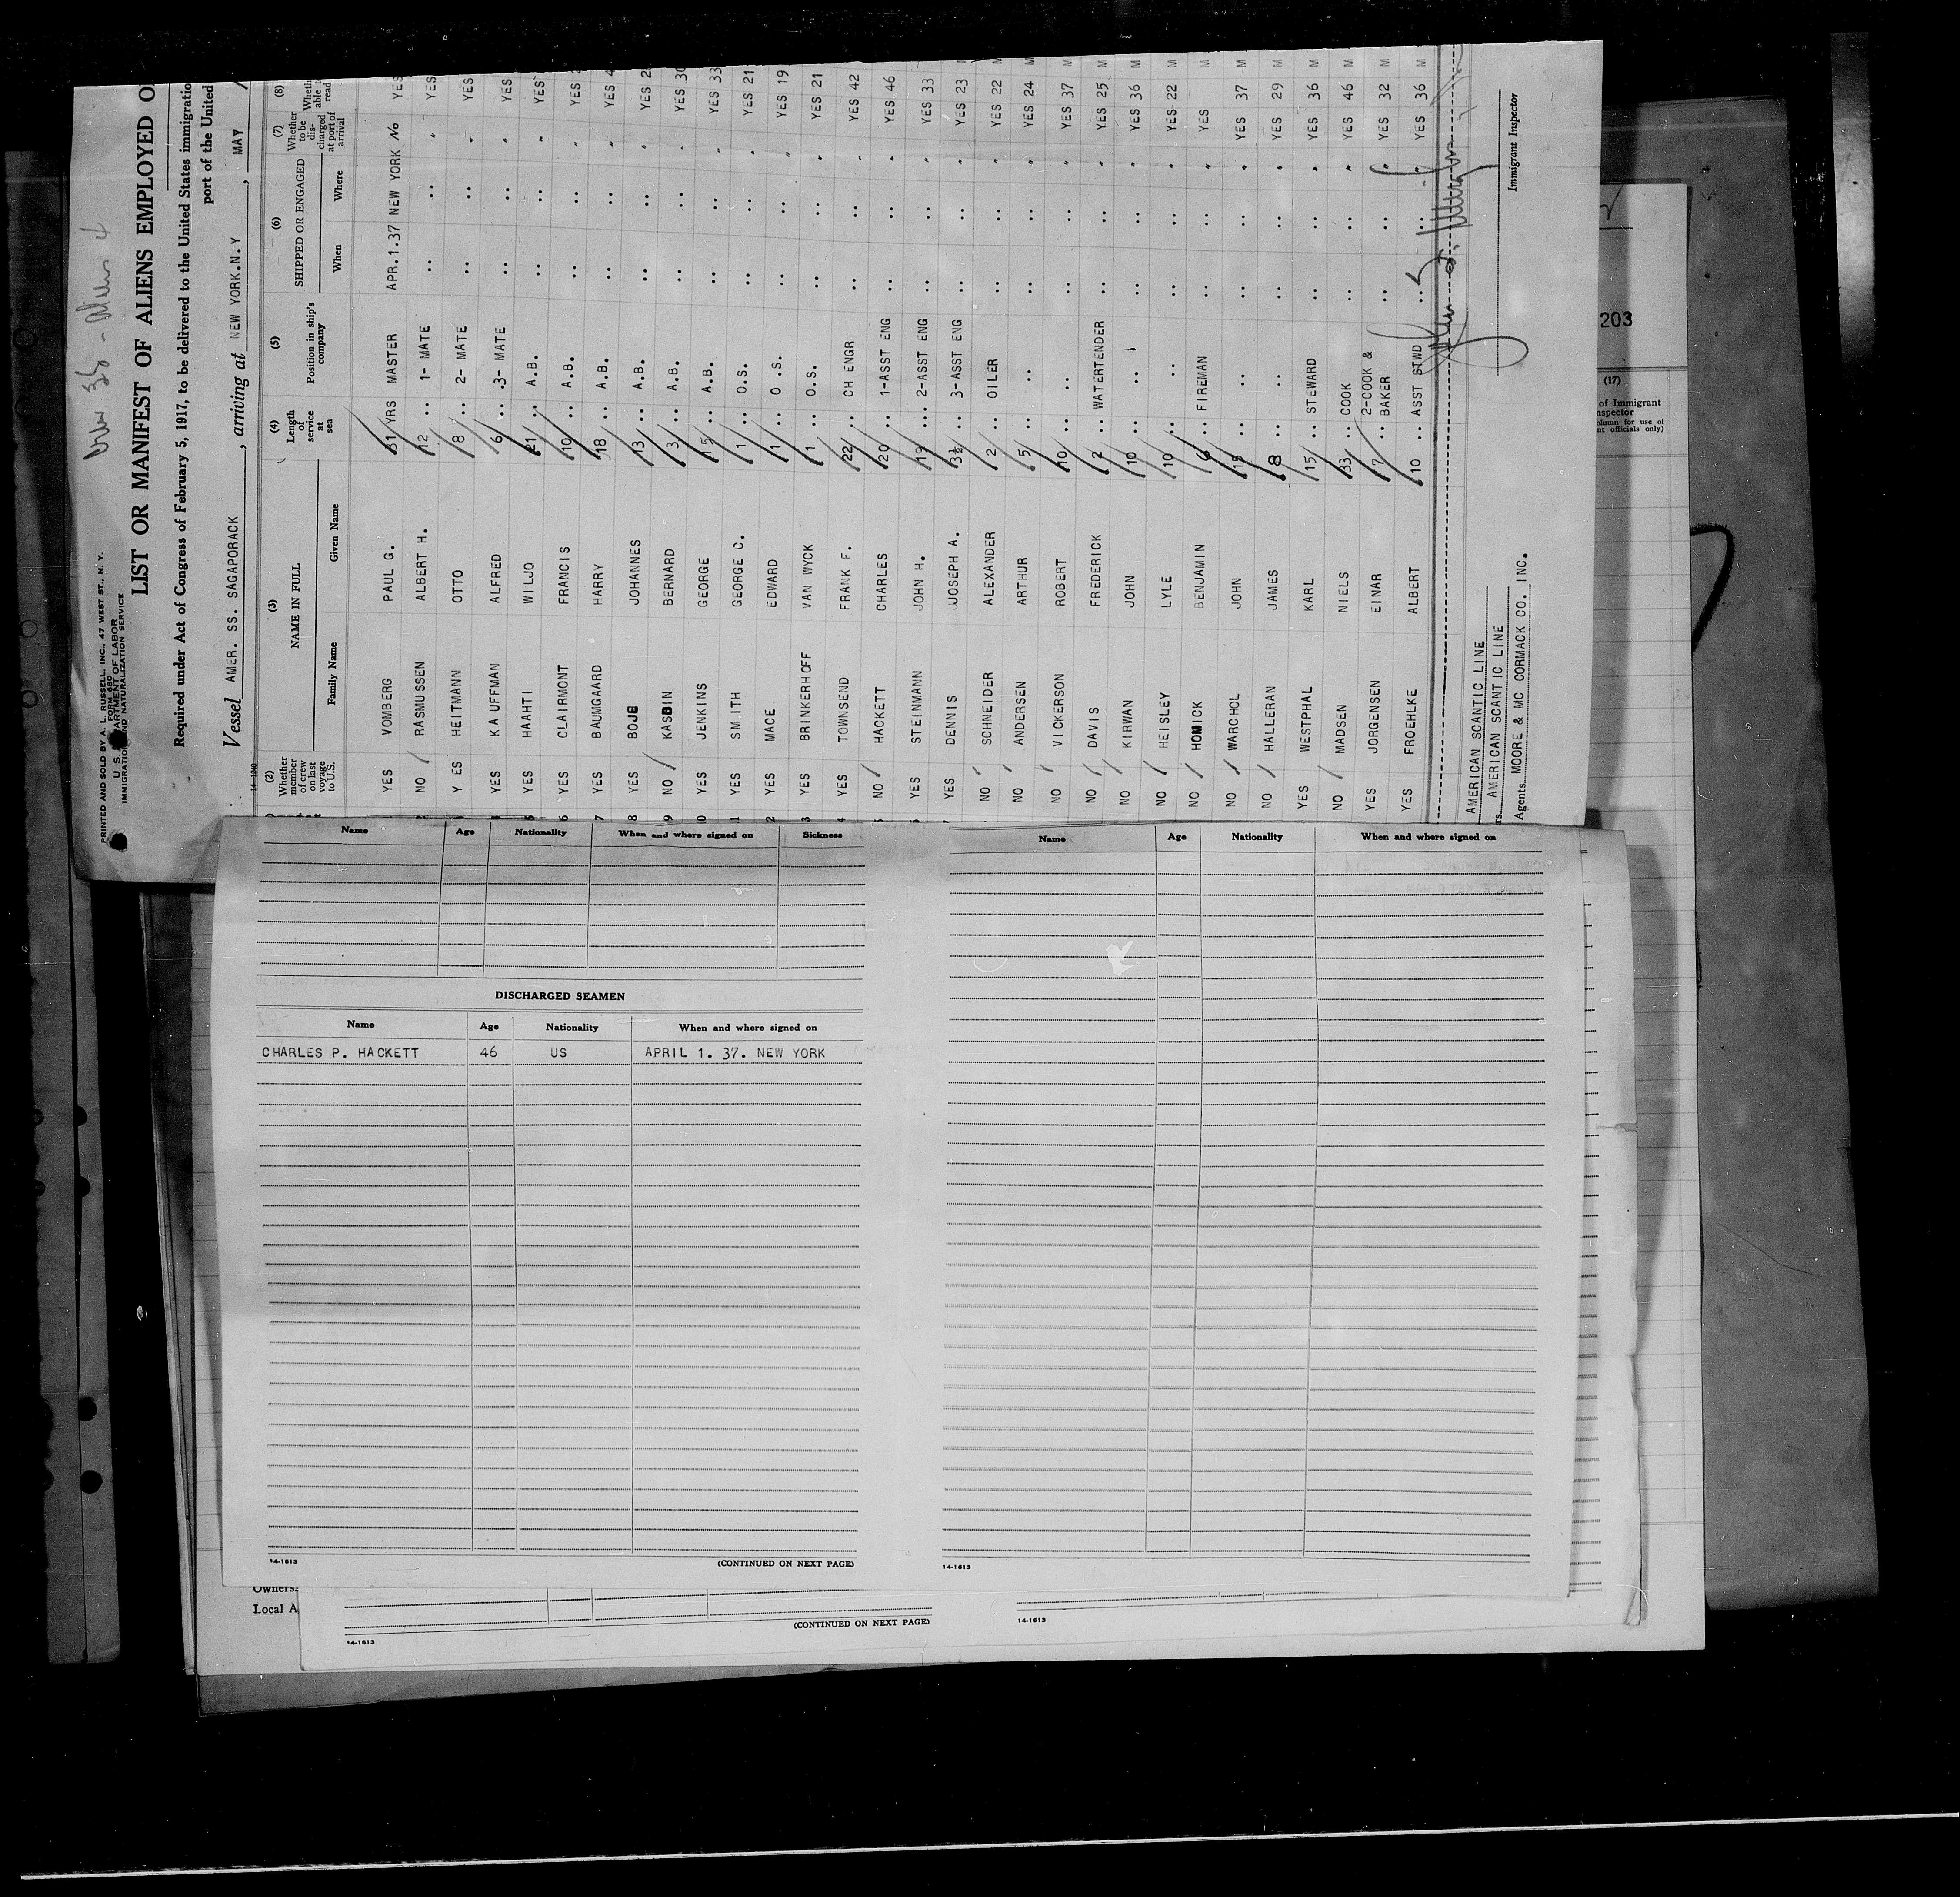 PRINTED AND SOLD BY A. L. RUSSELL, INC., 47 WEST ST., N. Y.
FORM 680
U. S. DEPARTMENT OF LABOR
IMMIGRATION AND NATURALIZATION SERVICE
LIST OR MANIFEST OF ALIENS EMPLOYED O
Required under Act of Congress of February 5, 1917, to be delivered to the United States immigratio
port of the United
Vessel AMER. SS. SAGAPORACK, arriving at NEW YORK.N.Y, MAY
14-1240
(2) Whether member of crew on last voyage to U.S. (3) NAME IN FULL Family Name Given Name (4) Length of service at sea (5) Position in ship's company (6) SHIPPED OR ENGAGED When Where (7) Whether to be discharged at port of arrival (8) Wheth able t read
YES VOMBERG PAUL G. 31 YRS MASTER APR.1.37 NEW YORK No YES
NO RASMUSSEN ALBERT H. 12 .. 1- MATE .. .. " YES
YES HEITMANN OTTO 8 .. 2- MATE .. .. " YES
YES KAUFFMAN ALFRED 6 .. 3- MATE .. .. " YES
YES HAAHTI WILJO 21 .. A.B. .. .. " YES
YES CLAIRMONT FRANCIS 10 .. A.B. .. .. " YES
YES BAUMGAARD HARRY 18 .. A.B. .. .. " YES
YES BOJE JOHANNES 13 .. A.B. .. .. " YES
NO KASBIN BERNARD 3 .. A.B. .. .. " YES 30
YES JENKINS GEORGE 15 .. A.B. .. .. " YES 33
YES SMITH GEORGE C. 1 .. O.S. .. .. " YES 21
YES MACE EDWARD 1 .. O.S. .. .. " YES 19
YES BRINKERHOFF VAN WYCK 1 .. O.S. .. .. " YES 21
YES TOWNSEND FRANK F. 22 .. CH ENGR .. .. " YES 42
NO HACKETT CHARLES 20 .. 1-ASST ENG .. .. " YES 46
YES STEINMANN JOHN H. 19 .. 2-ASST ENG .. .. " YES 33
YES DENNIS JOSEPH A. 3½ .. 3-ASST ENG .. .. " YES 23 M
NO SCHNEIDER ALEXANDER 2 .. OILER .. .. " YES 22 M
NO ANDERSEN ARTHUR 5 .. .. .. .. " YES 24 M
NO VICKERSON ROBERT 10 .. .. .. .. " YES 37 M
NO DAVIS FREDERICK 2 .. WATERTENDER .. .. " YES 25 M
NO KIRWAN JOHN 10 .. .. .. .. " YES 36 M
NO HEISLEY LYLE 10 .. .. .. .. " YES 22 M
NO HOMICK BENJAMIN 6 .. FIREMAN .. .. " YES M
NO WARCHOL JOHN 15 .. .. .. .. " YES 37 M
NO HALLERAN JAMES 8 .. .. .. .. " YES 29 M
YES WESTPHAL KARL 15 .. STEWARD .. .. " YES 36 M
NO MADSEN NIELS 33 .. COOK .. .. " YES 46 M
YES JORGENSEN EINAR 7 .. 2-COOK & BAKER .. .. " YES 32 M
YES FROEHLKE ALBERT 10 .. ASST STWD .. .. " YES 36 M
Immigrant Inspector
AMERICAN SCANTIC LINE
rs. AMERICAN SCANTIC LINE
Agents. MOORE & MC CORMACK CO. INC.
203
(17)
of Immigrant
nspector
olumn for use of
nt officials only)
Name Age Nationality When and where signed on Sickness
DISCHARGED SEAMEN
Name Age Nationality When and where signed on
CHARLES P. HACKETT 46 US APRIL 1. 37. NEW YORK
14-1613 (CONTINUED ON NEXT PAGE)
Name Age Nationality When and where signed on
14-1613
Owners
Local A
(CONTINUED ON NEXT PAGE)
14-1613
14-1613